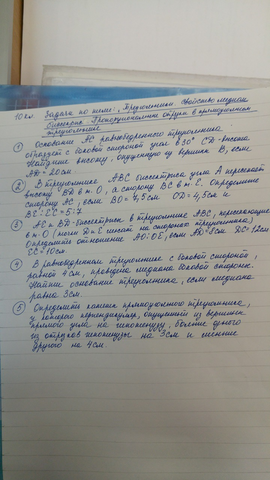 10 кл. Задачи по теме: „Треугольники. Свойство медиан
биссектрис. Пропорциональные отрезки в прямоугольном
треугольнике
① Основание АС равнобедренного треугольника
образует с боковой стороной угол в 30° CD - высота
Найдите высоту, опущенную из вершины В, если
AD = 20 см
② В треугольнике АВС биссектриса угла А пересекает
высоту BD в т. О, а сторону ВС в т. Е. Определите
сторону АС, если ВО = 7,5 см OD = 4,5 см и
BE : EC = 5:7
③ АЕ и BD - биссектрисы в треугольнике АВС, пересекающиеся
в т. О (точки D и E лежат на сторонах треугольника)
Определите отношение АО:ОЕ, если AD = 8 см DC = 12 см
EC = 10 см
④ В равнобедренном треугольнике с боковой стороной,
равной 4 см, проведена медиана боковой стороны.
Найти основание треугольника, если медиана
равна 3 см.
⑤ Определите катеты прямоугольного треугольника,
у которого перпендикуляр, опущенный из вершины
прямого угла на гипотенузу, больше одного
из отрезков гипотенузы на 3 см и меньше
другого на 4 см.